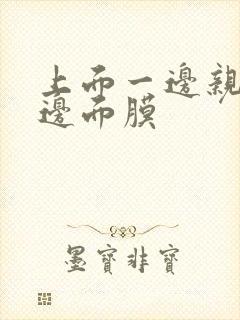 上而一邊親
邊而膜
墨寶非寶